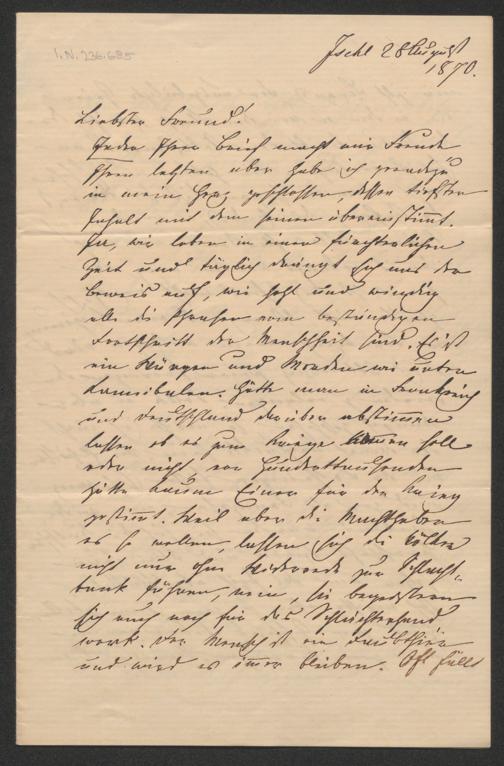 I.N. 236.685
Ischl 28 August
1870.
Liebster Freund!
Jeder Ihrer Briefe macht mir Freude
Ihren letzten aber habe ich geradezu
in mein Herz geschlossen, dessen tiefster
Inhalt mit dem seinen übereinstimmt.
Ja, wir leben in einer fürchterlichen
Zeit und täglich drängt sich uns der
Beweis auf, wie hohl und windig
alle die Phrasen vom beständigen
Fortschritt der Menschheit sind. Es ist
ein Würgen und Morden wie unter
Kannibalen. Hätte man in Frankreich
und Deutschland darüber abstimmen
lassen ob es zum Kriege kommen soll
oder nicht, von Hunderttausenden
hätte kaum Einer für den Krieg
gestimmt. Weil aber die Machthaber
es so wollen, lassen sich die Völker
nicht nur ohne Widerrede zur Schlacht-
bank führen, nein, sie begeistern
sich auch noch für das Schlächterhand
werk. Der Mensch ist ein Raubthier
und wird es immer bleiben. Oft füllt